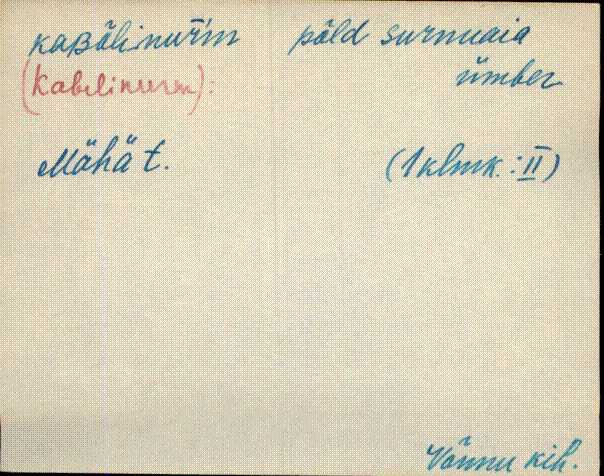 kaʙõlinuŕm põld surnuaia
ümber
(Kabelinurm):
Mõhä t. (1 klmk.: II)
Võnnu kih.